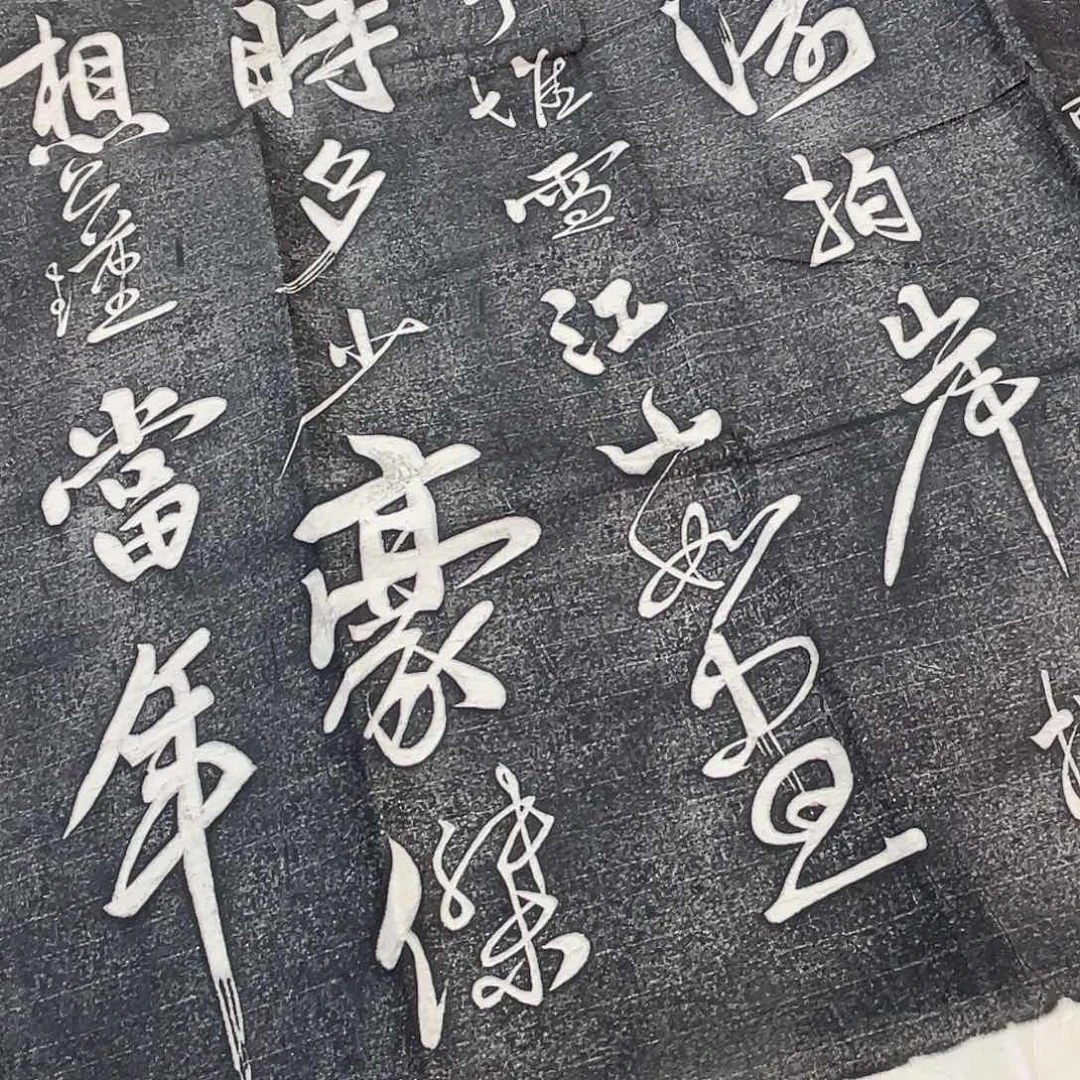 濤拍岸
堆雪江山如畫
時多少豪傑
想公瑾當年